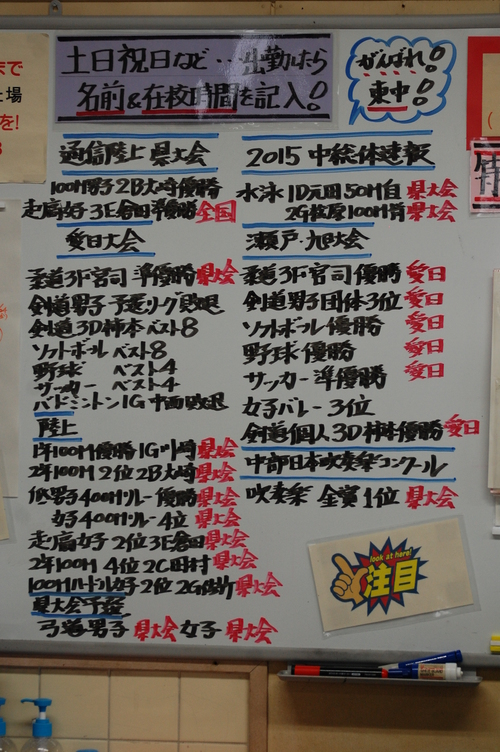 土日祝日など…出勤したら
名前&在校時間を記入!
がんばれ!
東中!
通信陸上県大会
100M男子2B大崎優勝
走高女子3E倉田準優勝全国
愛日大会
柔道3F宮司 準優勝県大会
剣道男子 予選リーグ敗退
剣道3D柿本ベスト8
ソフトボール ベスト8
野球 ベスト4
サッカー ベスト4
バドミントン1G中西敗退
陸上
1年100M優勝1G川崎県大会
2年100M2位2B大崎県大会
低男子400Mリレー優勝県大会
女子400Mリレー4位県大会
走高女子2位3E倉田県大会
2年100M 4位2C田村県大会
100Mハードル女子2位2G 県大会
県大会予選
弓道男子 県大会 女子 県大会
2015 中総体速報
水泳 1D元田50M自 県大会
2G 原100M背 県大会
瀬戸・旭大会
柔道3F宮司優勝 愛日
剣道男子団体3位 愛日
ソフトボール優勝 愛日
野球優勝 愛日
サッカー準優勝 愛日
女子バレー3位
剣道個人3D柿本優勝愛日
中部日本吹奏楽コンクール
吹奏楽 金賞1位 県大会
look at here!
注目
まで
場
を!